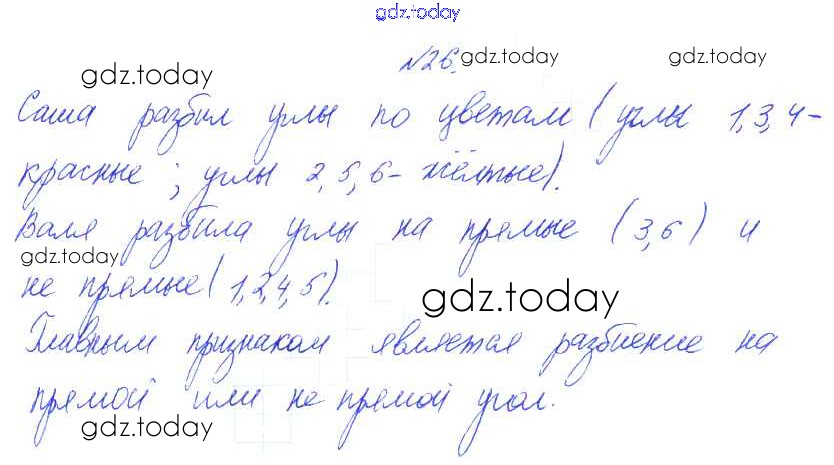 gdz.today
№26. gdz.today gdz.today
gdz.today
Саша разбил углы по цветам (углы 1,3,4-
красные; углы 2,5,6- жёлтые).
Валя разбила углы на прямые (3,6) и
gdz.today
не прямые (1,2,4,5).
gdz.today
Главным признаком является разбиение на
прямой или не прямой угол.
gdz.today